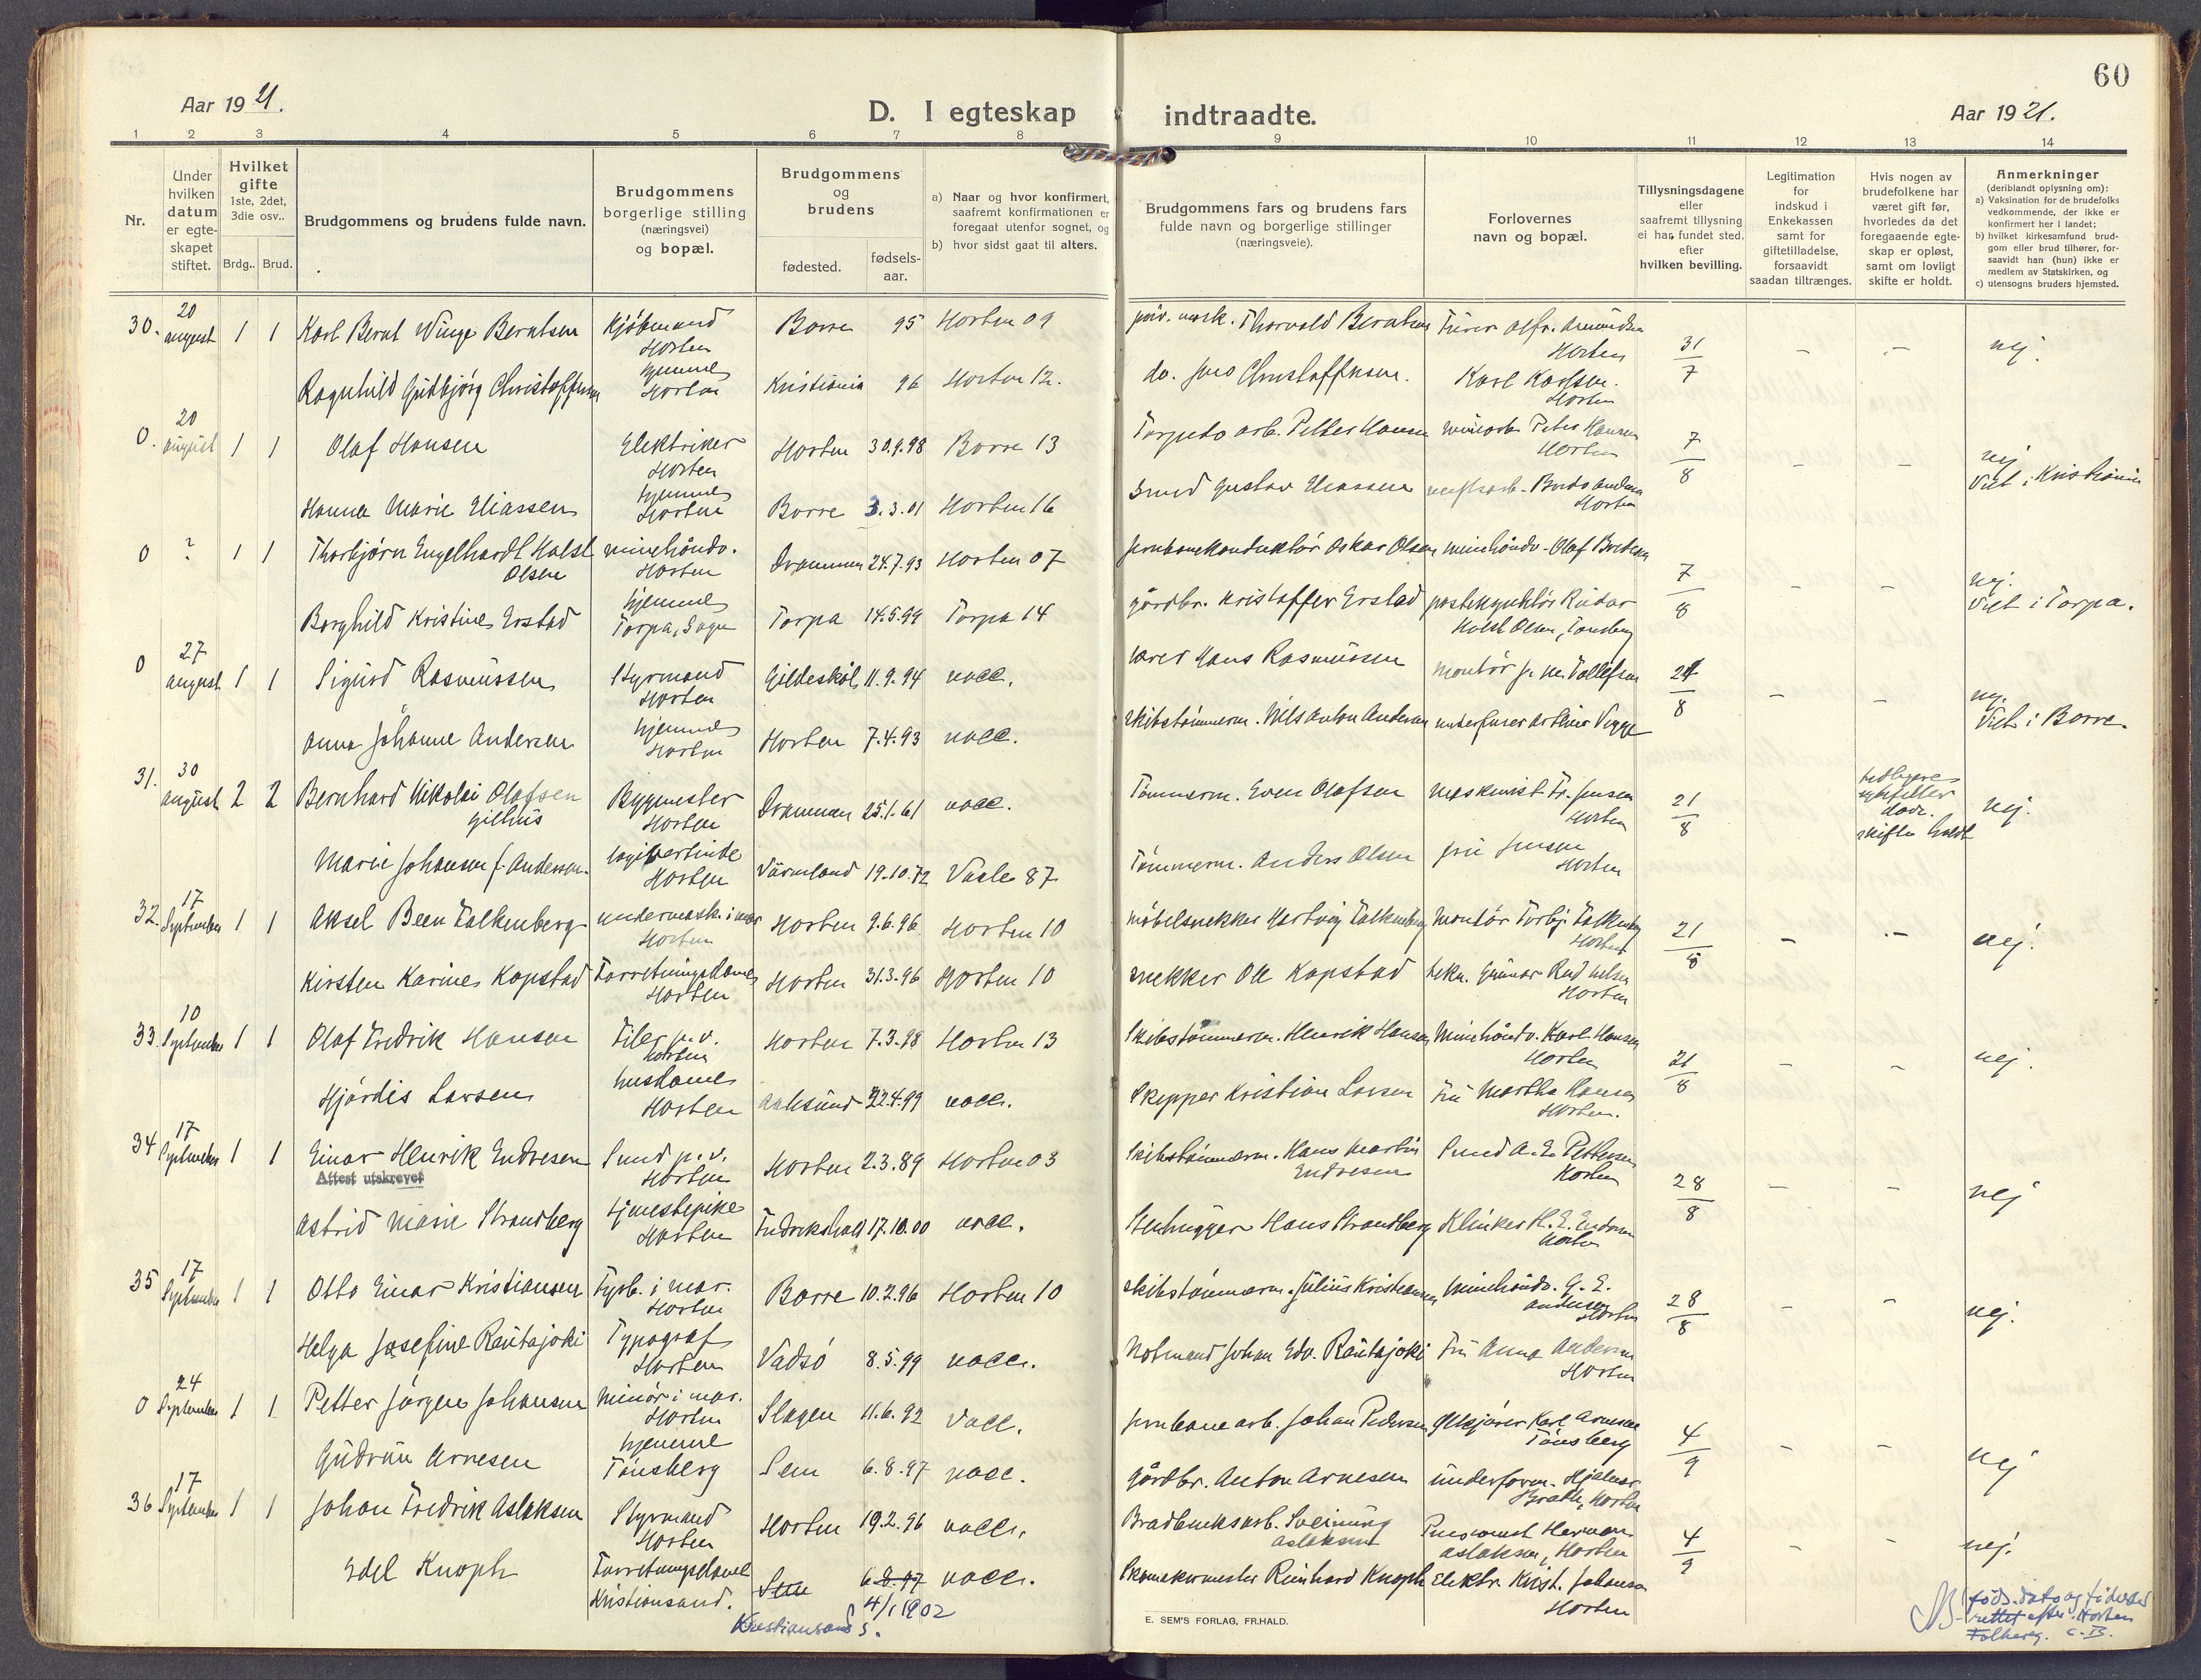 60
Aar 1921.
D. I egteskap indtraadte.
Aar 1921.
1 2 3 4 5 6 7 8 9 10 11 12 13 14
Nr.
Under hvilken datum er egteskapet stiftet.
Hvilket gifte 1ste, 2det, 3die osv..
Brdg.. Brud.
Brudgommens og brudens fulde navn.
Brudgommens borgerlige stilling (næringsvei) og bopæl.
Brudgommens og brudens
fødested.
fødsels-aar.
a) Naar og hvor konfirmert, saafremt konfirmationen er foregaat utenfor sognet, og
b) hvor sidst gaat til alters.
Brudgommens fars og brudens fars fulde navn og borgerlige stillinger (næringsveie).
Forlovernes navn og bopæl.
Tillysningsdagene eller saafremt tillysning ei har fundet sted. efter hvilken bevilling.
Legitimation for indskud i Enkekassen samt for giftetilladelse, forsaavidt saadan tiltrænges.
Hvis nogen av brudefolkene har været gift før, hvorledes da det foregaaende egteskap er opløst, samt om lovligt skifte er holdt.
Anmerkninger (deriblandt oplysning om):
a) Vaksination for de brudefolks vedkommende, der ikke er konfirmert her i landet;
b) hvilket kirkesamfund brudgom eller brud tilhører, forsaavidt han (hun) ikke er medlem av Statskirken, og
c) utensogns bruders hjemsted.
30. 20 august 1 1 Karl Bernt Winge Berntsen Kjøbmand Horten Borre 95 Horten 09 Thorvald Berntsen Horten 31/7 - - nej.
Ragnhild Gudbjørg Christoffersen hjemme Horten Kristiania 96 Horten 12. do. Jens Christoffersen. Karl Karlsen. Horten
0. 20 august 1 1 Olaf Hansen Elektriker Horten Horten 30.9.98 Borre 13 Torpedo arb. Petter Hansen Peter Hansen Horten 7/8 - - nej Viet i Kristiania
Hanna Marie Eliassen hjemme Horten Borre 3.3.01 Horten 16 Smed Gustav Eliassen Horten
0 ? 1 1 Thorbjørn Engelhardt Holst Olsen minehåndv. Horten Drammen 24.7.93 Horten 07 Jernbanekonduktør Oskar Olsen minehåndv. Olaf 7/8 - - nej. Viet i Torpa.
Borghild Kristine Erstad hjemme Torpa, Torpa 14.5.99 Torpa 14 gårdbr. Kristoffer Erstad postekspeditör Holst Olsen, Tønsberg
0 27 august 1 1 Sigurd Rasmussen Styrmand Horten Gildeskål 11.9.94 vacc. Hans Rasmussen montør Tollefsen 21/8 - - nej. Viet i Borre.
Anna Johanne Andersen hjemme Horten Horten 7.4.93 vacc. skibstømmerm. Nils Anton Andersen
31. 30 august 2 2 Bernhard Nikolai Olafsen Gilhus Bygmester Horten Drammen 25.1.61 vacc. Tømmerm. Even Olafsen maskinist Fr. Jensen Horten 21/8 tidligere døde. skifte holdt nej.
Marie Johansen f. Andersson. Horten Värmland 19.10.72 Vaale 87 Tømmerm. Anders Olsen fru Jensen Horten
32. 17 September 1 1 Aksel Been Falkenberg undermask. i mar. Horten Horten 9.6.96 Horten 10 møbelsnekker Hartvig Falkenberg montør Torbj. Falkenberg Horten 21/8 - - nej.
Kirsten Karine Kopstad Forretningsdame Horten Horten 31.3.96 Horten 10 snekker Ole Kopstad Gunnar Horten
33. 10 September 1 1 Olaf Fredrik Hansen Filer p.v. Horten Horten 7.3.98 Horten 13 Skibstømmerm. Henrik Hansen Minehåndv. Karl Hansen Horten 21/8 - - nej.
Hjørdis Larsen husdame Horten Aalesund 22.4.99 vacc. Skipper Kristian Larsen Fru Martha Hansen Horten.
34 17 September 1 1 Einar Henrik Endresen Smed p.v. Horten Horten 2.3.89 Horten 03 Skibstømmerm. Hans Martin Endresen Smed A. E. Pettersen Horten 28/8 - - nej
Attest utskrevet
Astrid Marie Strandberg tjenestepike Horten Fredrikshald 17.10.00 vacc. Stenhugger Hans Strandberg Klinker H. E. Endresen Horten
35 17 September 1 1 Otto Einar Kristiansen Fyrb. i mar. Horten Borre 10.2.96 Horten 10 skibstømmerm. Julius Kristiansen Minehåndv. G. E. Andersen Horten 28/8 - - nej.
Helga Josefine Rautajoki Typograf Horten Vadsø 8.5.99 vacc. Notmand Johan Edv. Rautajoki Fru Anna Andersen Horten
0 24 September 1 1 Petter Jørgen Johansen Minør i mar. Horten Slagen 11.6.92 vacc. Jernbanearb. Johan Pedersen Karl Arnesen Tønsberg 4/9 - - nej
Gudrun Arnesen hjemme Tønsberg Sem 6.8.97 vacc. gårdbr. Anton Arnesen underform. Hjalmar Horten
36 17 September 1 1 Johan Fredrik Aslaksen Styrmand Horten Horten 19.2.96 vacc. Sveinung Aslaksen Herman Aslaksen, Horten 4/9 - - nej.
Edel Knoph Forretningsdame Kristiansand. Sem 6.8.97 vacc. Skomakermester Reinhard Knoph Elektr. Krist. Johansen Horten
Kristiansand S. 4/1 1902
NB! føds.dato og fødested rettet efter Horten Folkereg. C.B.
E. SEM'S FORLAG, FR.HALD.